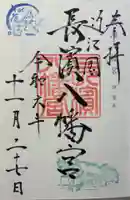 奉拝
近江国
長濱八幡宮
令和六年
十一月二十七日